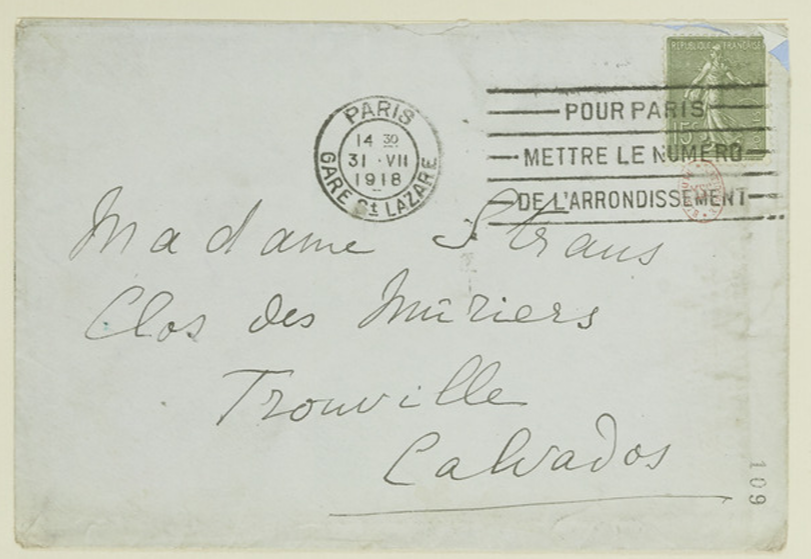 REPUBLIQUE FRANÇAISE
15c
PARIS
14 30
31 · VII
1918
GARE St LAZARE
POUR PARIS
METTRE LE NUMERO
DE L'ARRONDISSEMENT
Madame Straus
Clos des Mûriers
Trouville
Calvados
109